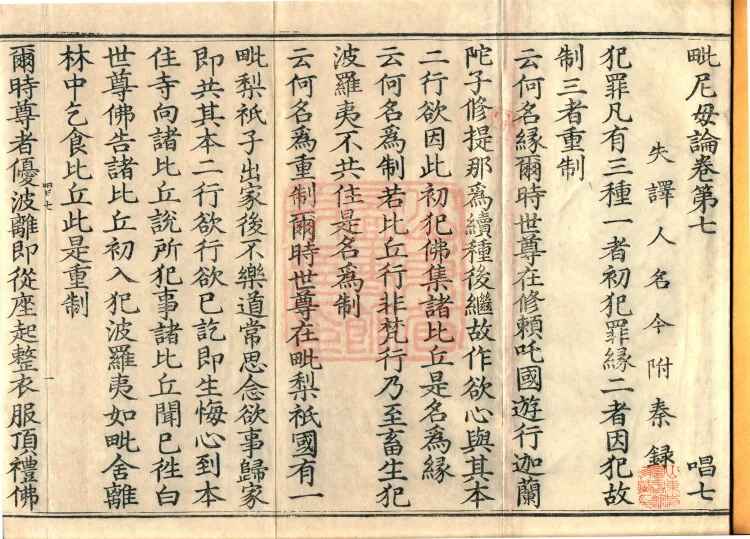 毗尼毋論卷第七 唱七
失譯人名今附秦録
犯罪凡有三種一者初犯罪縁二者因犯故
制三者重制
云何名縁爾時世尊在修頼吒國遊行迦蘭
陀子修提那爲續種後繼故作欲心與其本
二行欲因此初犯佛集諸比丘是名爲縁
云何名爲制若比丘行非梵行乃至畜生犯
波羅夷不共住是名爲制
云何名爲重制爾時世尊在毗梨祇國有一
毗梨祇子出家後不樂道常思念欲事歸家
即共其本二行欲行欲已訖即生悔心到本
住寺向諸比丘說所犯事諸比丘聞已徃白
世尊佛告諸比丘初入犯波羅夷如毗舍離
林中乞食比丘此是重制
爾時尊者優波離即從座起整衣服頂禮佛